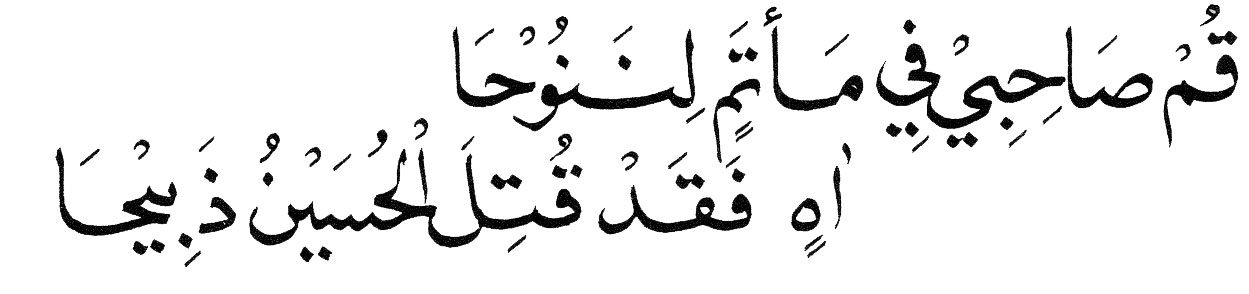 قُمْ صَاحِبِيْ فِي مَأتَمٍ لِنَنُوْحَا
اٰهٍ فَقَدْ قُتِلَ الْحُسَيْنُ ذَبِيْحَا